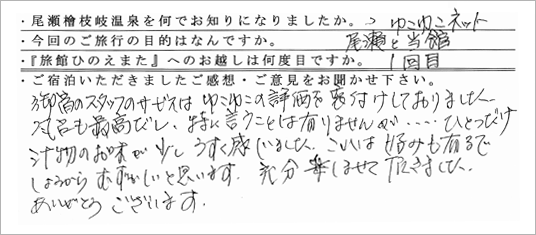 ・尾瀬檜枝岐温泉を何でお知りになりましたか。→ゆこゆこネット
・今回のご旅行の目的はなんですか。尾瀬と当館
・『旅館ひのえまた』へのお越しは何度目ですか。1回目
・ご宿泊いただきましたご感想・ご意見をお聞かせ下さい。
御宿のスタッフのサービスはゆこゆこの評価を裏付けしておりました。
風呂も最高だし、特に言うことは有りませんが‥‥ひとつだけ
汁物のお味が少しうすく感じました。こいは好みも有るで
しょうからむずかしいと思います。充分楽しませて頂きました。
ありがとうございます。